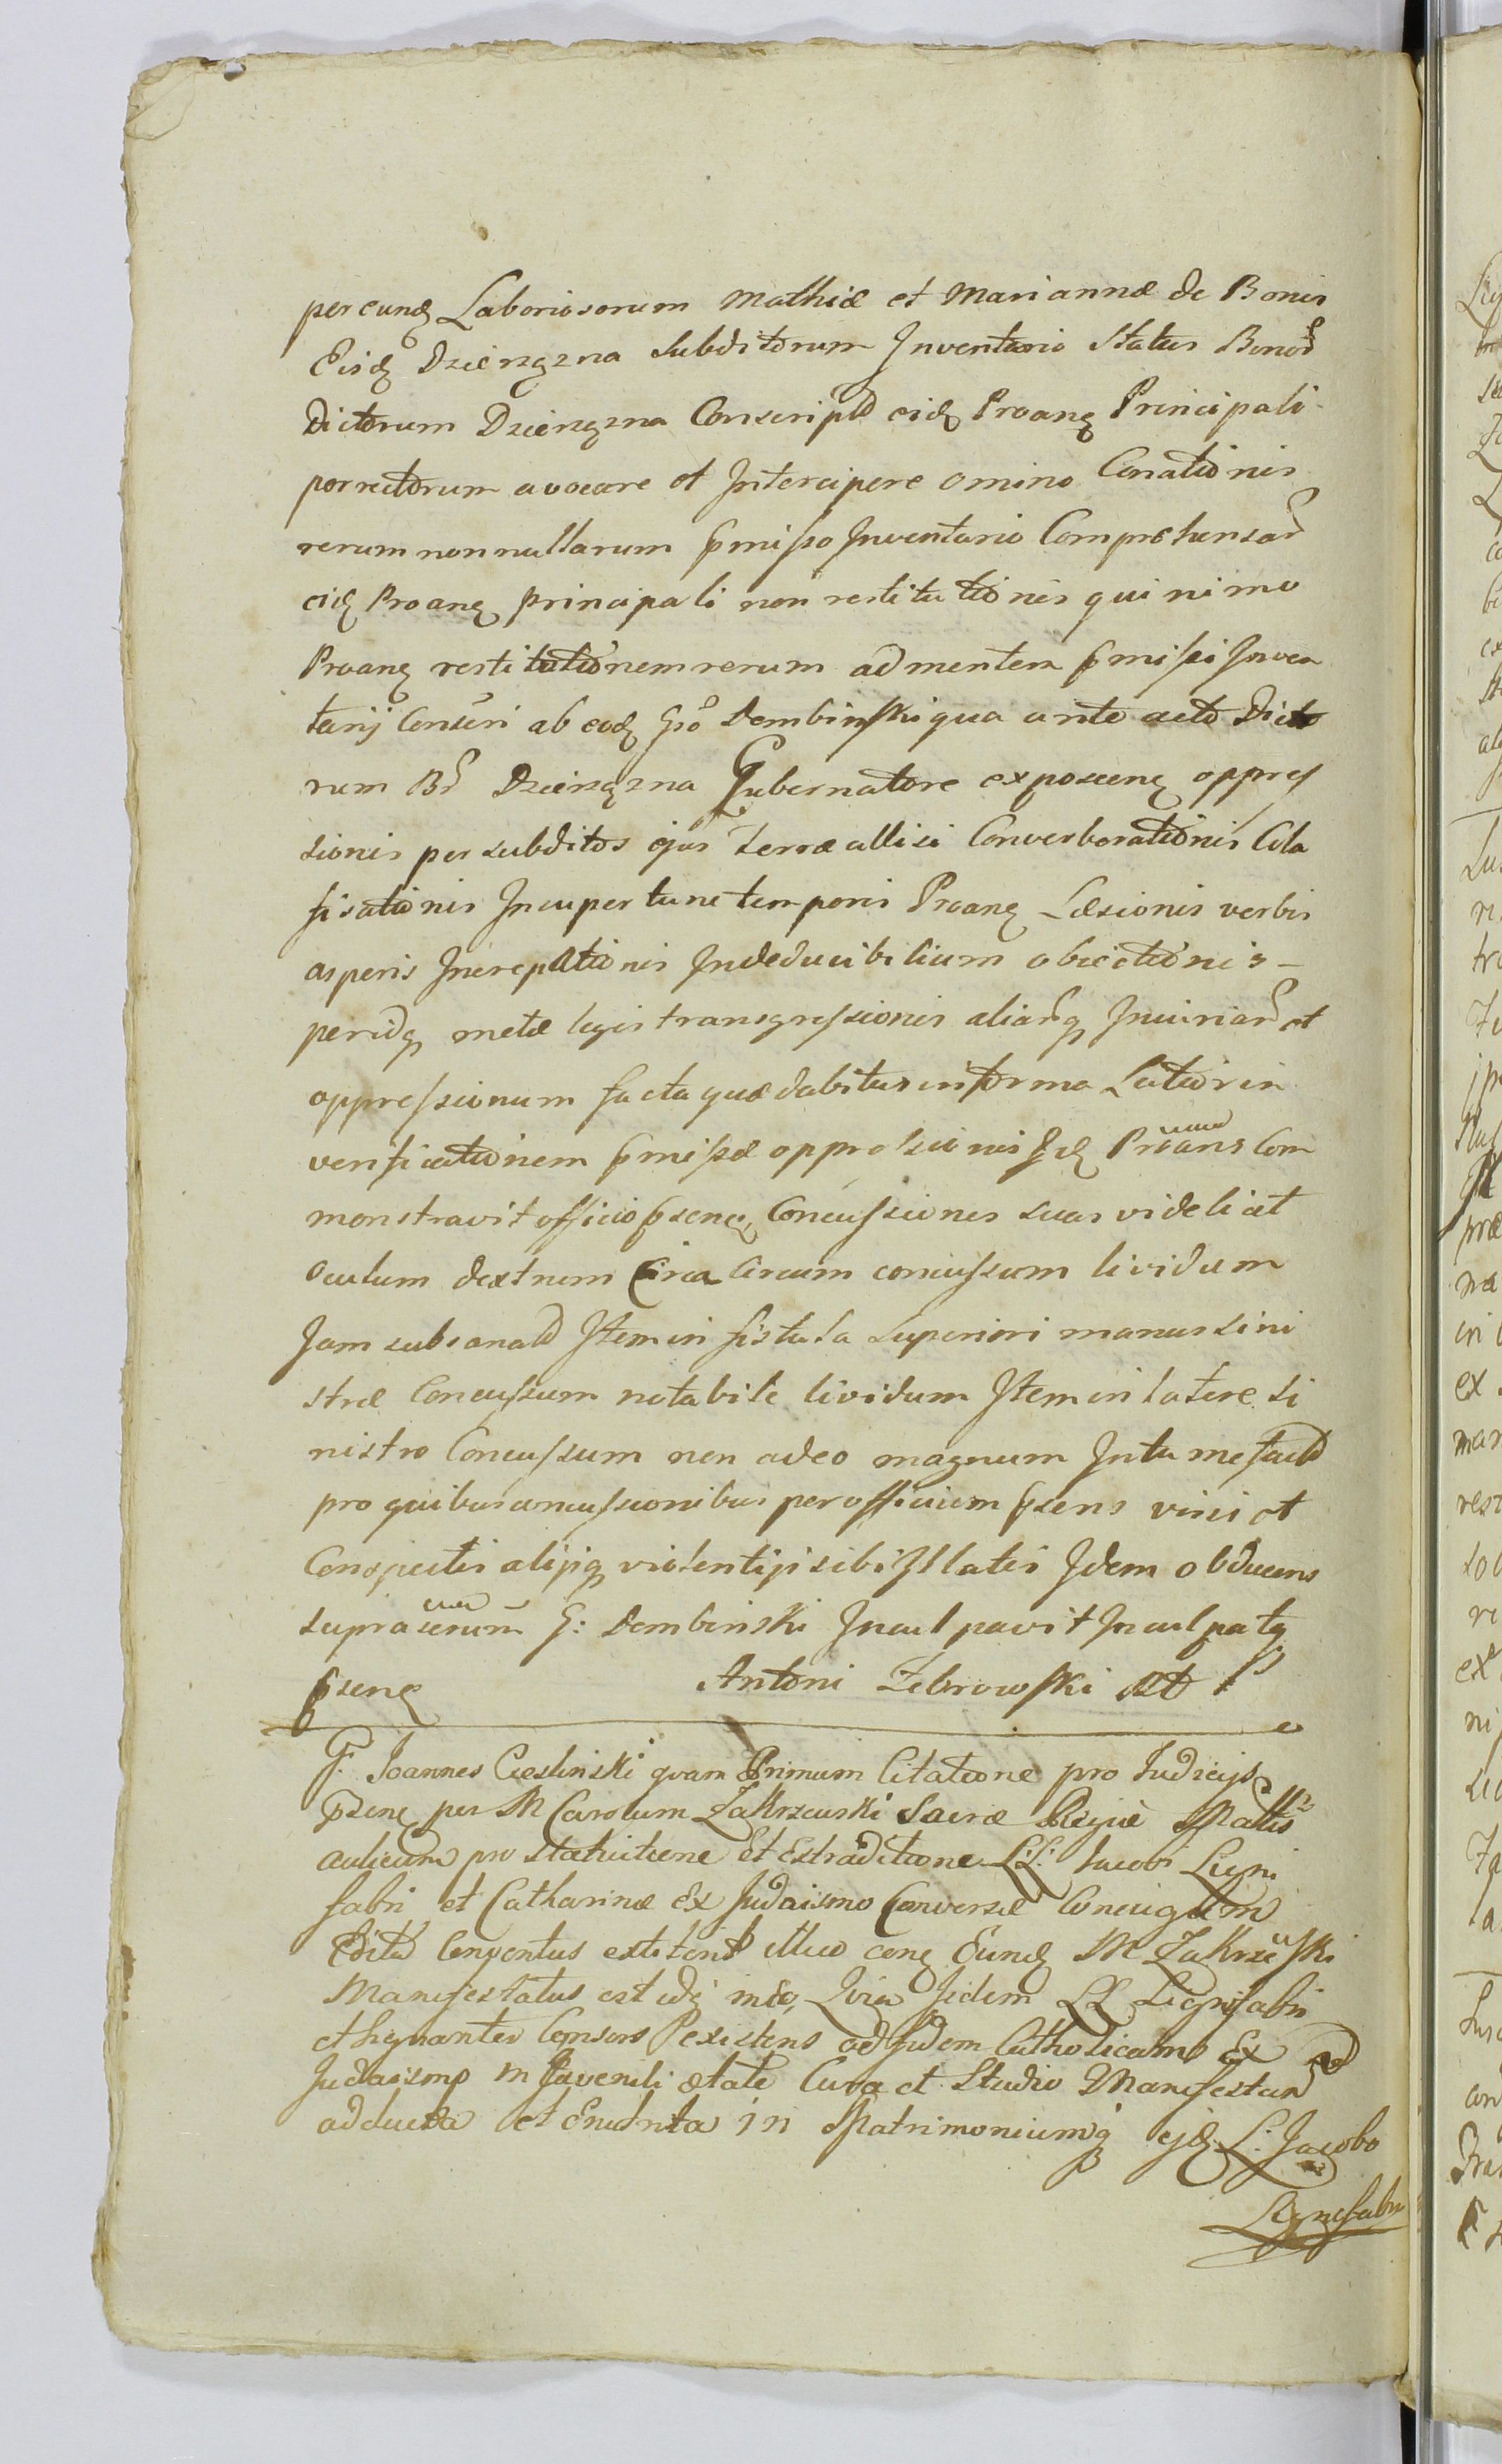 per eund Laboriosorum Mathiæ et Mariannæ de Bonis
Eisd Dzierzązna subditorum Inventario Status Bonor
Dictorum Dzierzązna Conscripto eid Proanq Principali
porrectorum avocare et Intercipere omino Conationis
rerum nonnullarum pmisso Inventario Comprehensar
eid Proanq principali non restitutionis quinimo
Proanq restitutionem rerum ad mentem pmissi Inven
tarij Censeri ab eod Gso Dembinski qua ante acto Dicto
rum Br Dzierzązna Gubernatore exposcenq oppres
sionis per subditos ejus Terræ allisi Converberationis Cola
fisationis Incupertune temporis Proanq Læsionis verbis
asperis Increpationis Indeducibilium obiectionis
peridq metæ legis transgressionis aliarq Iniuriar et
oppressionum facta quæ dabitur in forma Latiori in
verificationem pmissæ oppressionis Id Proans Com
monstravit officio psenq Concussiones suas videlicet
oculum dextrum Circa Circum concussum lividum
Jam subsanato Item in fistula superiori manus sini
stræ Concussum notabile lividum Item in latere si
nistro Concussum non adeo magnum Intumefacto
pro quibus concussionibus per officium psens visis et
Conspectis alijsq violentijs sibi Illatis Idem obducens
supra G: Dembinski Inculpavit Inculpatq
psenq Antoni Zebrowski
G. Joannes Cieslinski quam Primum Citatione pro Judicijs
psenq per M Carolum Zakrzewski Sacræ Regiæ Mattis
aulicum pro statuitione Et Extraditione LL: Jacobi Ligni
fabri et Catharinæ Ex Judaismo Conversæ Coniugum
Edita Conventus extitent illico conq Eund M Zakrzewski
Manifestatus est idq ideo, Quia Iidem LL Lignifabri
et signanter Consors existens ad fidem Catholicam Ex
Judaismo in Juvenili ætate Cura et Studio Manifestan
adducta et Enutrita in Matrimoniumq ejd L: Jacobo
Lignifabro